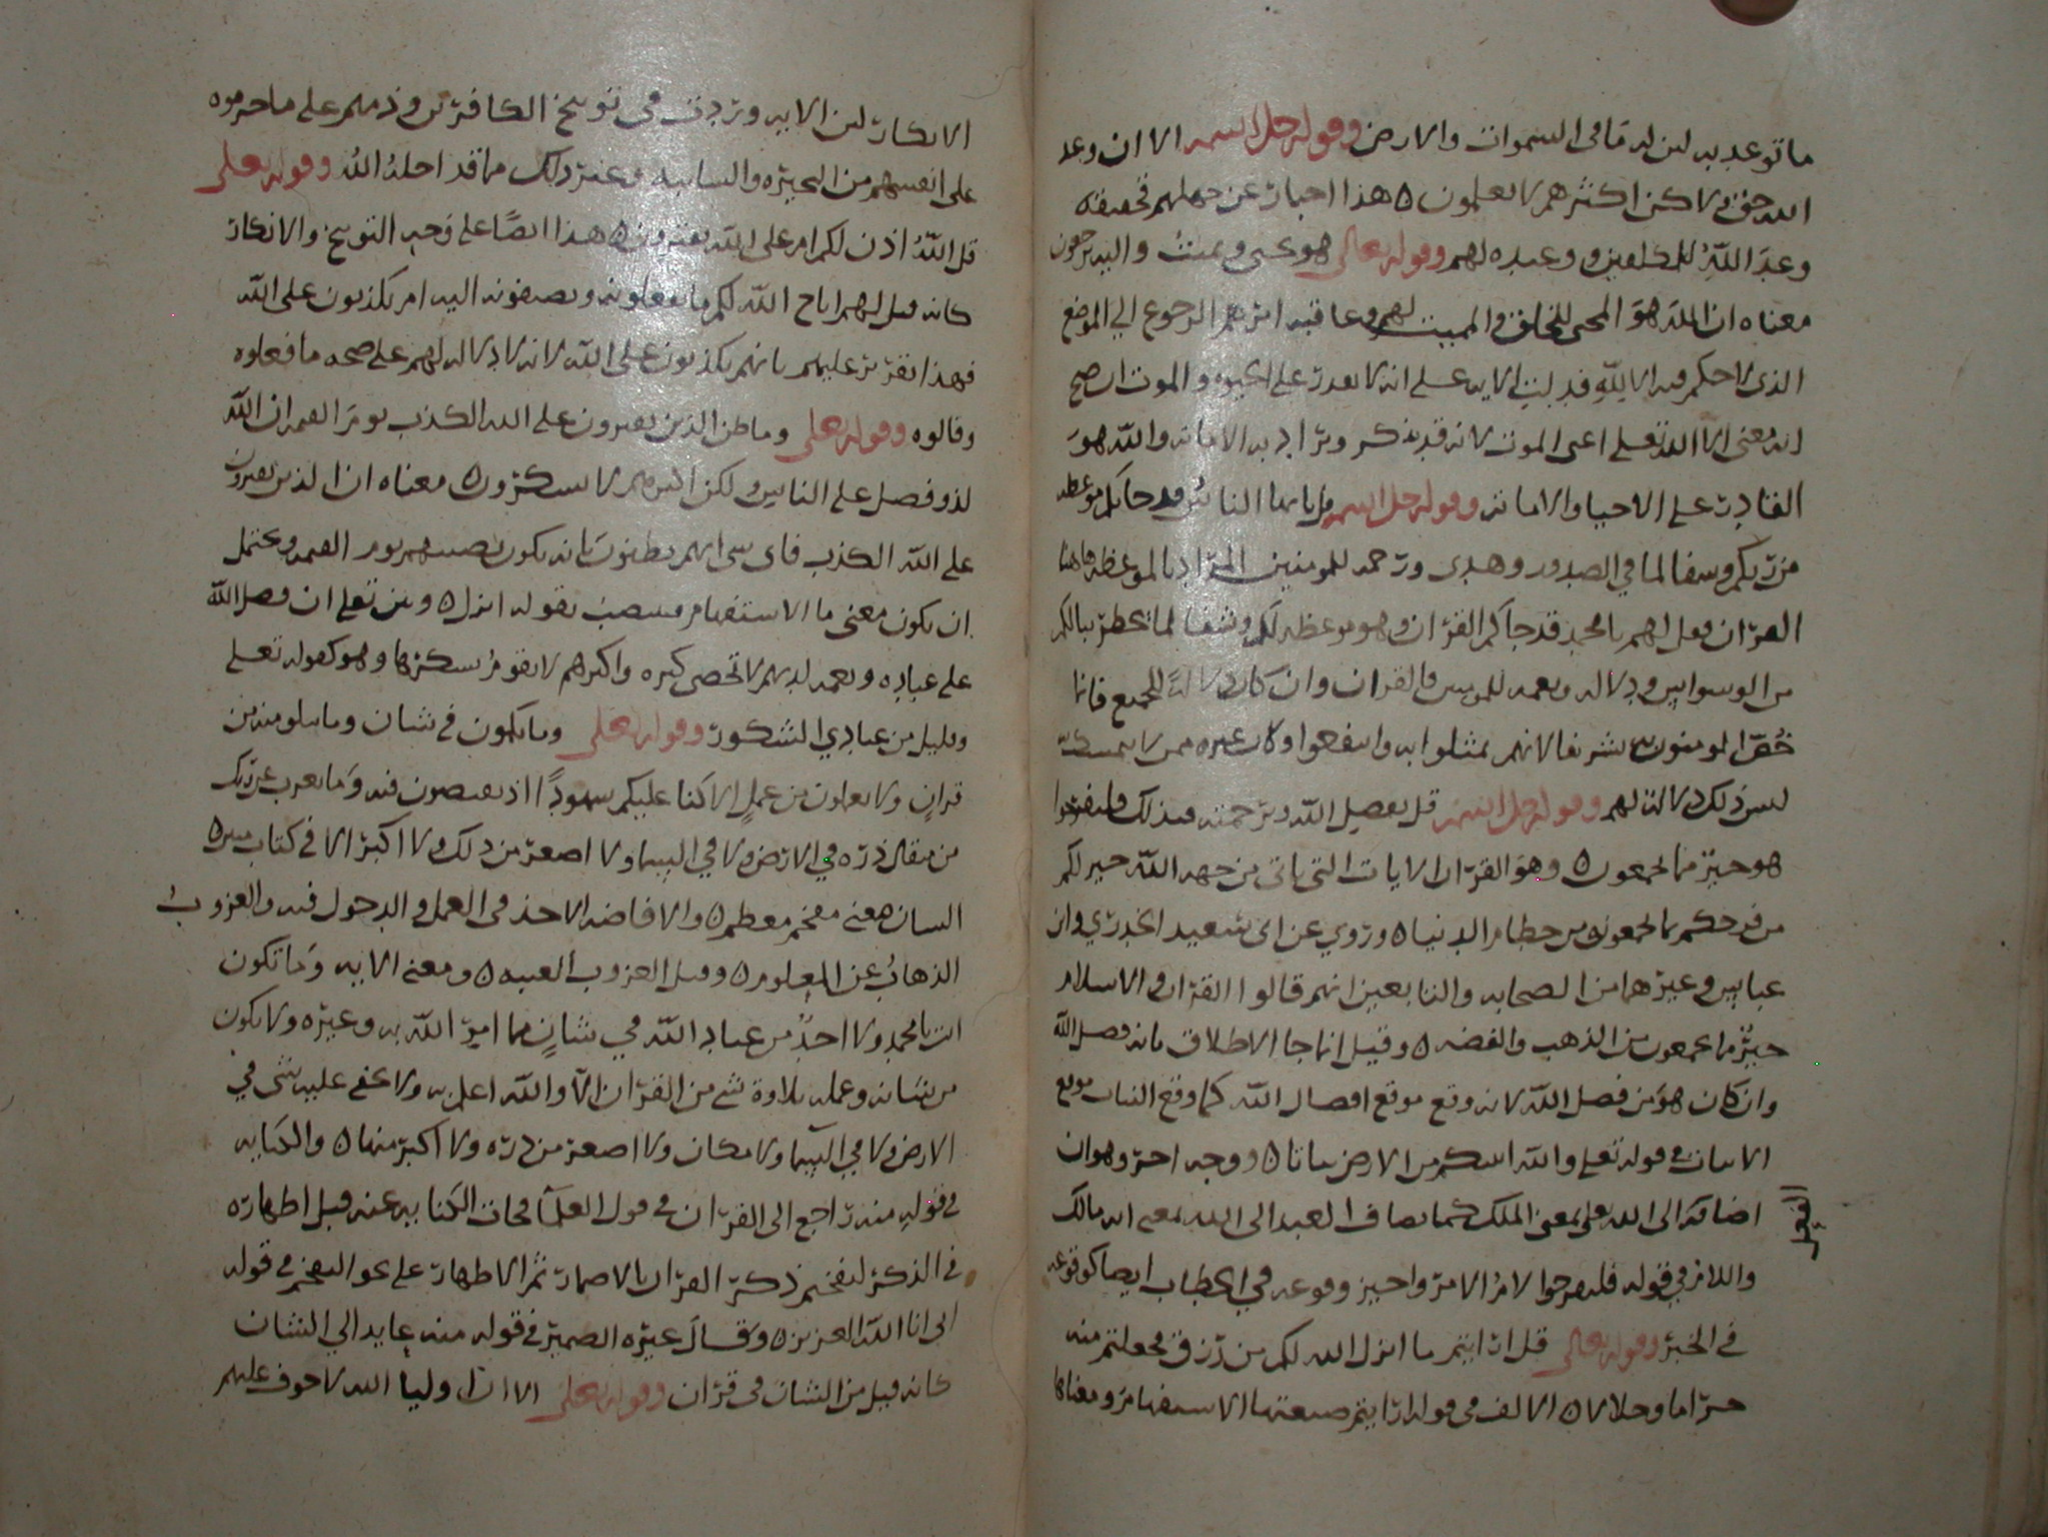 ما توعد به لان له ما في السموات والارض وقوله جل اسمه الا ان وعد
الله حق ولاكن اكثرهم لا يعلمون ه هذا اخبار عن جهلهم بحقيقة
وعد الله للمكلفين ووعيده لهم وقوله تعالى هو يحيى ويميت واليه ترجعون
معناه ان الله هو المحيى للخلق والمميت لهم وعاقبة امرهم الرجوع الي الموضع
الذي لا حكم فيه الا لله قد بينت الايه على انه لا يقدر على الحيوه والموت ان صح
انه معنى الا الله تعلى اعنى الموت لانه قد يذكر ويراد به الاماته والله هو
القادر على الاحيا والاماته وقوله جل اسمه قل يا يها الناس قد جاكم موعظه
من ربكم وشفا لما في الصدور وهدى ورحمه للمومنين المراد بالموعظه هاهنا
القران فقل لهم يا محمد قد جاكم القران وهو موعظه لكم وشفا لما يخطر ببالكم
من الوسواس ودلاله ونعمه للمومنين فالقران وان كان دلالة للجميع فانما
خص المومنون به تشريفا لانهم تمثلوا به وانتفعوا وكان غيره ممن لا يتمسك به
ليس ذلك دلالة لهم وقوله جل اسمه قل بفضل الله وبرحمته فبذلك فليفرحوا
هو خير مما يجمعون ه وهو القران الايات التى ياتى من جهة الله خير لكم
من فرحكم بما تجمعون من حطام الدنيا ه وروي عن ابى سعيد الخدري وابن
عباس وغيرهما من الصحابه والتابعين انهم قالوا القران والاسلام
خير مما يجمعون من الذهب والفضه ه وقيل انما جا الاطلاق بانه فضل الله
وان كان هو من فضل الله لانه وقع موقع افضال الله كما وقع النبات موقع
الانبات في قوله تعلى والله انبتكم من الارض نباتا ه ووجه اخر وهو ان
اضافته الى الله تعلى بمعنى الملك كما يضاف العبد الى الله بمعنى انه مالك
واللام في قوله فليفرحوا لام الامر واجيز وقوعه في الخطاب ايضا كوقوعه
في الخبر وقوله تعالى قل ارايتم ما انزل الله لكم من رزق فجعلتم منه
حراما وحلالا ه الالف في قوله ارايتم صيغتها الاستفهام ومعناها
الانكار لان الايه وردت في توبيخ الكافرين وذمهم على ما حرموه
على انفسهم من البحيره والسايبه وغير ذلك مما قد احله الله وقوله تعلى
قل الله اذن لكم ام على الله تفترون ه هذا ايضا على وجه التوبيخ والانكار
كانه قيل لهم اباح الله لكم ما تفعلونه وتضيفونه اليه ام تكذبون على الله
فهذا تقرير عليهم بانهم يكذبون على الله لانه لا دلاله لهم على صحه ما فعلوه
وقالوه وقوله تعلى وما ظن الذين يفترون على الله الكذب يوم القيمه ان الله
لذو فضل على الناس ولكن اكثرهم لا يشكرون ه معناه اذا الذين يفترون
على الله الكذب فاى شى انهم يظنون بانه يكون نصيبهم يوم القيمه ويحتمل
ان يكون معنى ما الاستفهام فينتصب بقوله انزل ه وبين تعلى ان فضل الله
على عباده ونعمه لديهم لا تحصى كثره واكثرهم لا يقوم بشكرها وهو كقوله تعلى
وقليل من عبادي الشكور وقوله تعلى وما تكون في شان وما تتلو منه من
قران ولا تعملون من عمل الا كنا عليكم شهودا اذ تفيضون فيه وما يعزب عن ربك
من مثقال ذره في الارض ولا في السما ولا اصغر من ذلك ولا اكبر الا في كتاب مبين ه
الشان معنى مفخم معظم ه والافاضه الاخذ في العمل والدخول فيه والعزوب
الذهاب عن المعلوم ه وقيل العزوب الغيبه ه ومعنى الايه وما تكون
انت يا محمد ولا احد من عباد الله في شان مما امر الله به وغيره ولا يكون
من شانه وعمله تلاوة شى من القران الا والله اعلم به ولا يخفى عليه شى في
الارض ولا في السما ولا مكان ولا اصغر من ذره ولا اكبر منها ه والكنايه
في قوله منه راجع الى القران في قول العلما فجات الكنايه عنه قبل اظهاره
في الذكر لتفخيم ذكر القران بالاضمار ثم الاظهار على نحو التفخيم في قوله
انى انا الله العزيز ه وقال غيره الضمير في قوله منه عايد الي الشان
كانه قيل من الشان في قران وقوله تعلى الا ان اوليا الله لا خوف عليهم